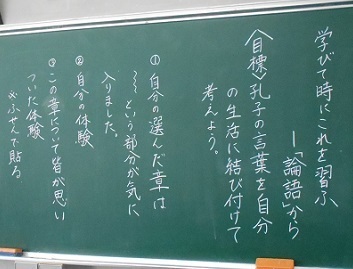 学びて時にこれを習ふ
―「論語」から
〈目標〉孔子の言葉を自分
の生活に結び付けて
考えよう。
① 自分の選んだ章は
〜〜という部分が気に
入りました。
② 自分の体験
③ この章について皆が思い
ついた体験
※ふせんで貼る